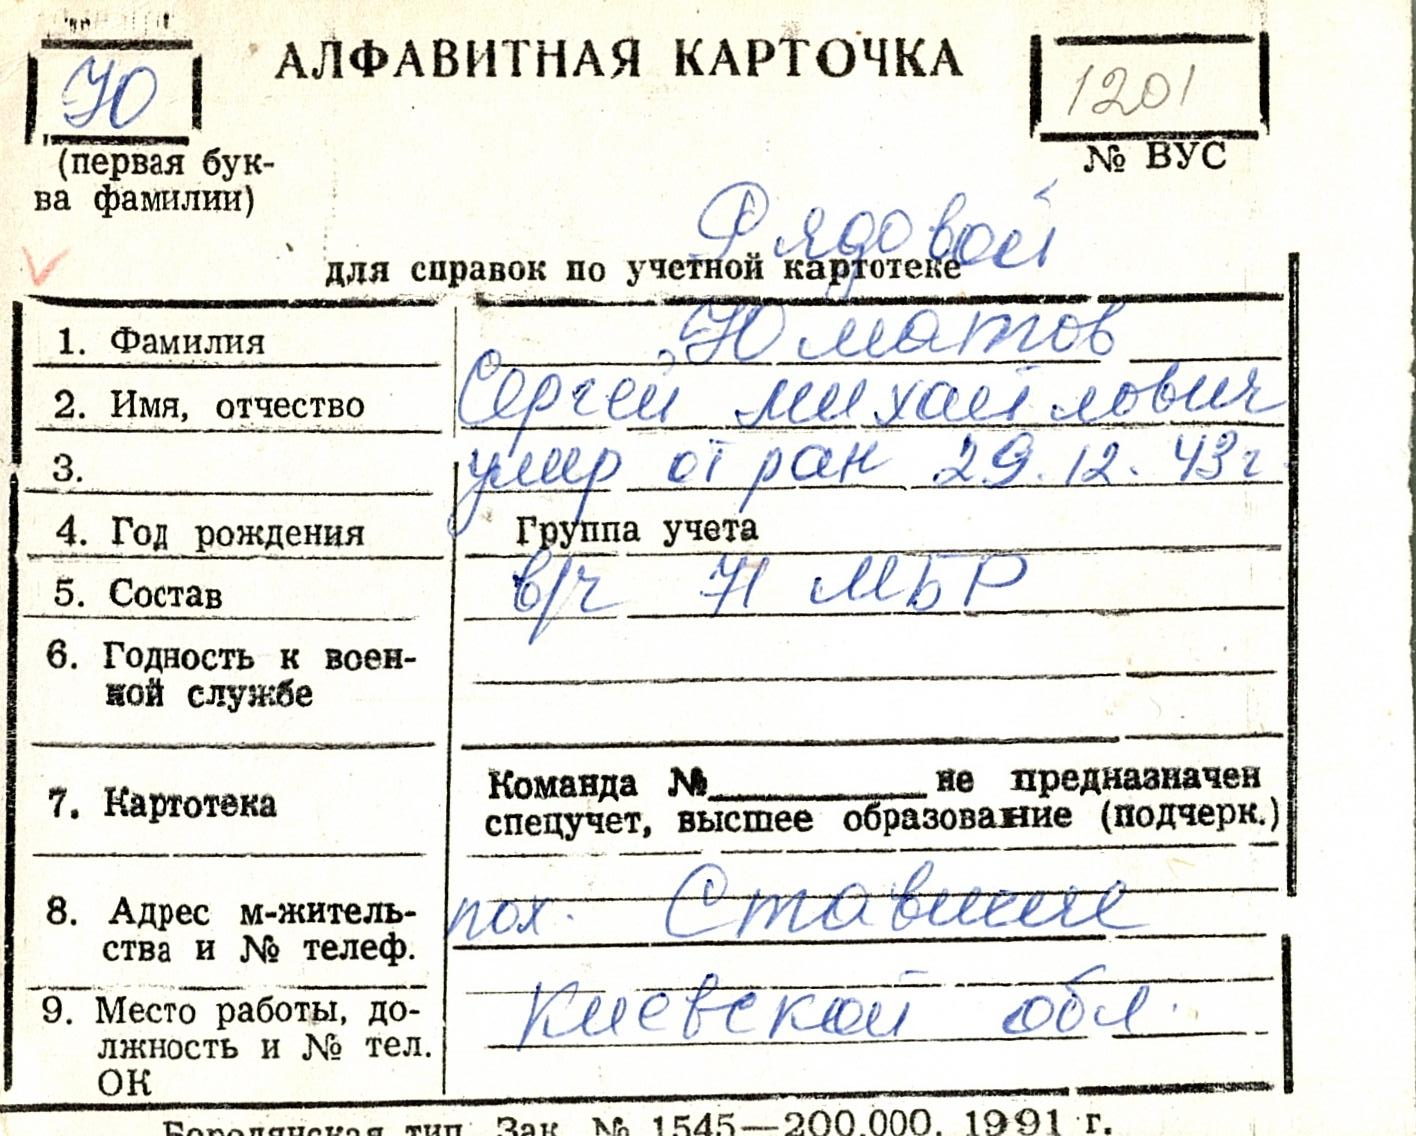 Ю
АЛФАВИТНАЯ КАРТОЧКА
1201
(первая бук-
ва фамилии)
№ ВУС
Рядовой
для справок по учетной картотеке
1. Фамилия Юматов
2. Имя, отчество Сергей михайлович
3. умер от ран 29.12.43г.
4. Год рождения Группа учета
5. Состав в/ч 71 МБР
6. Годность к воен-
ной службе
7. Картотека Команда №__________ не предназначен
спецучет, высшее образование (подчерк.)
8. Адрес м-житель-
ства и № телеф. пох. Ставище
9. Место работы, до-
лжность и № тел.
ОК Киевской обл.
Бородянская тип. Зак. № 1545—200.000. 1991 г.